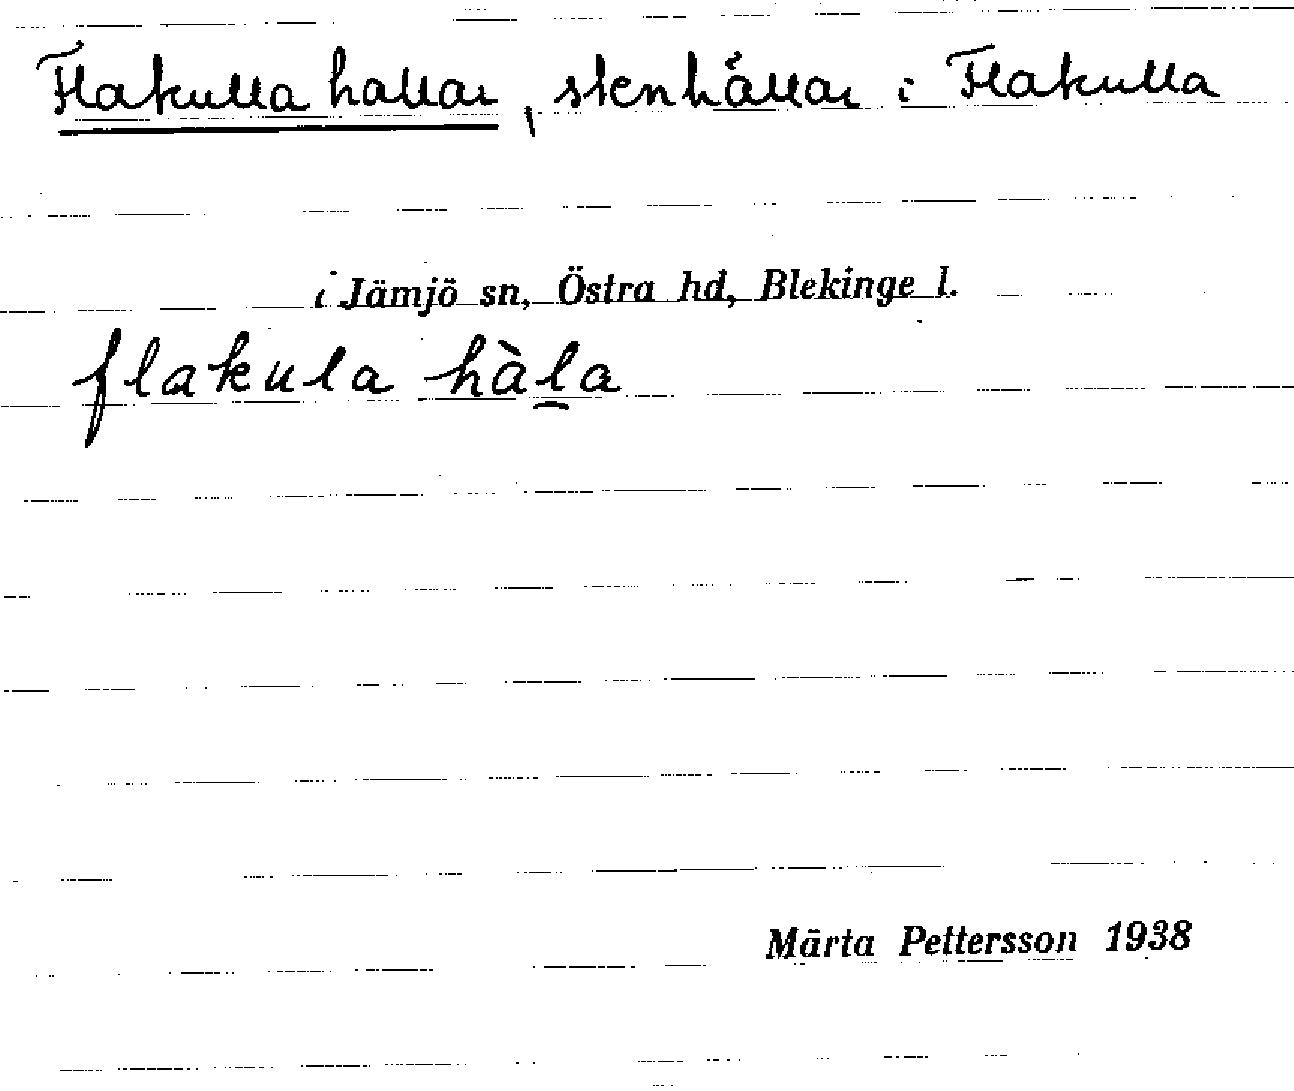 Flakulla hallar, stenhällar i Flakulla
i Jämjö sn, Östra hd, Blekinge l.
flakula hàl̠a
Märta Pettersson 1938